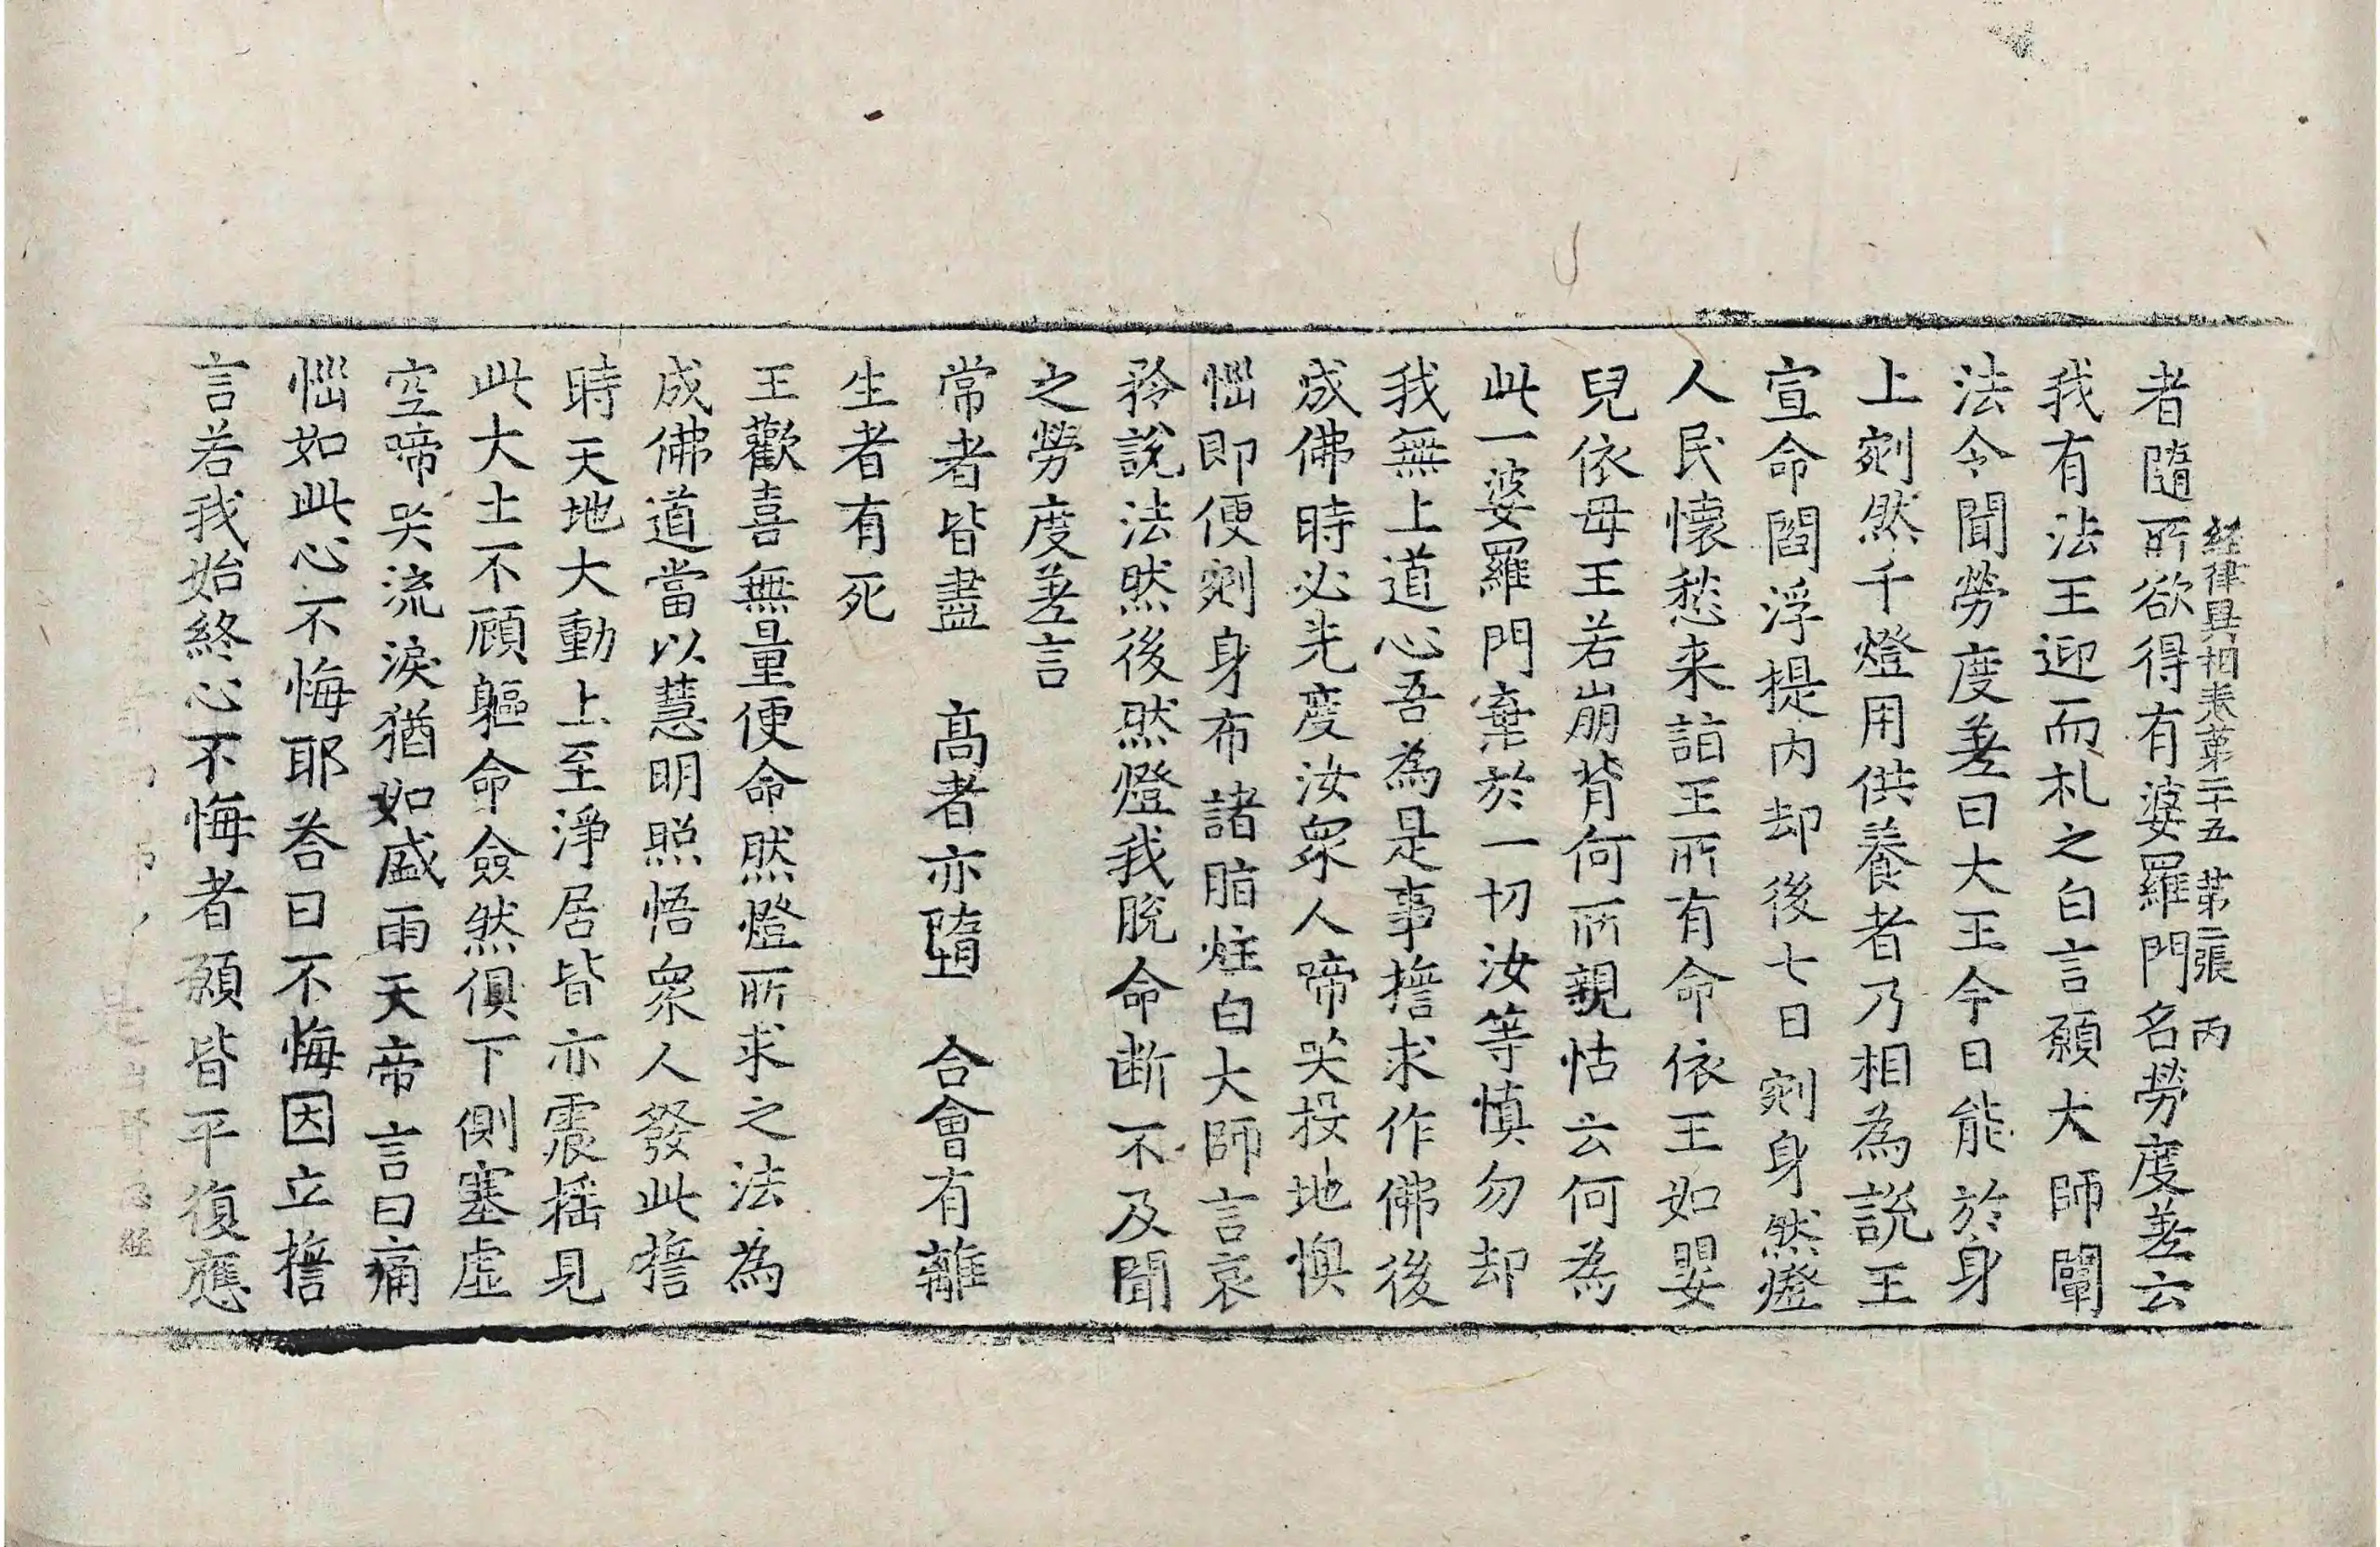 經律異相卷第二十五 第二張 丙
者隨所欲得有婆羅門名勞度差云
我有法王迎而礼之白言願大師闡
法令聞勞度差曰大王今日能於身
上剜然千燈用供養者乃相為說王
宣命閻浮提内却後七日剜身然燈
人民懷愁来詣王所有命依王如嬰
兒依母王若崩背何所親怙云何為
此一婆羅門棄於一切汝等慎勿却
我無上道心吾為是事擔求作佛後
成佛時必先度汝眾人啼哭投地懊
惱即便剜身布諸脂炷白大師言哀
矜說法然後然燈我脫命斷不及聞
之勞度差言
常者皆盡 高者亦墮 合會有離
生者有死
王歡喜無量便命然燈所求之法為
成佛道當以慧明照悟眾人發此擔
時天地大動上至淨居皆亦震搖見
此大士不顧軀命僉然俱下側塞虛
空啼哭流淚猶如盛雨天帝言曰痛
惱如此心不悔耶荅曰不悔因立擔
言若我始終心不悔者願皆平復應